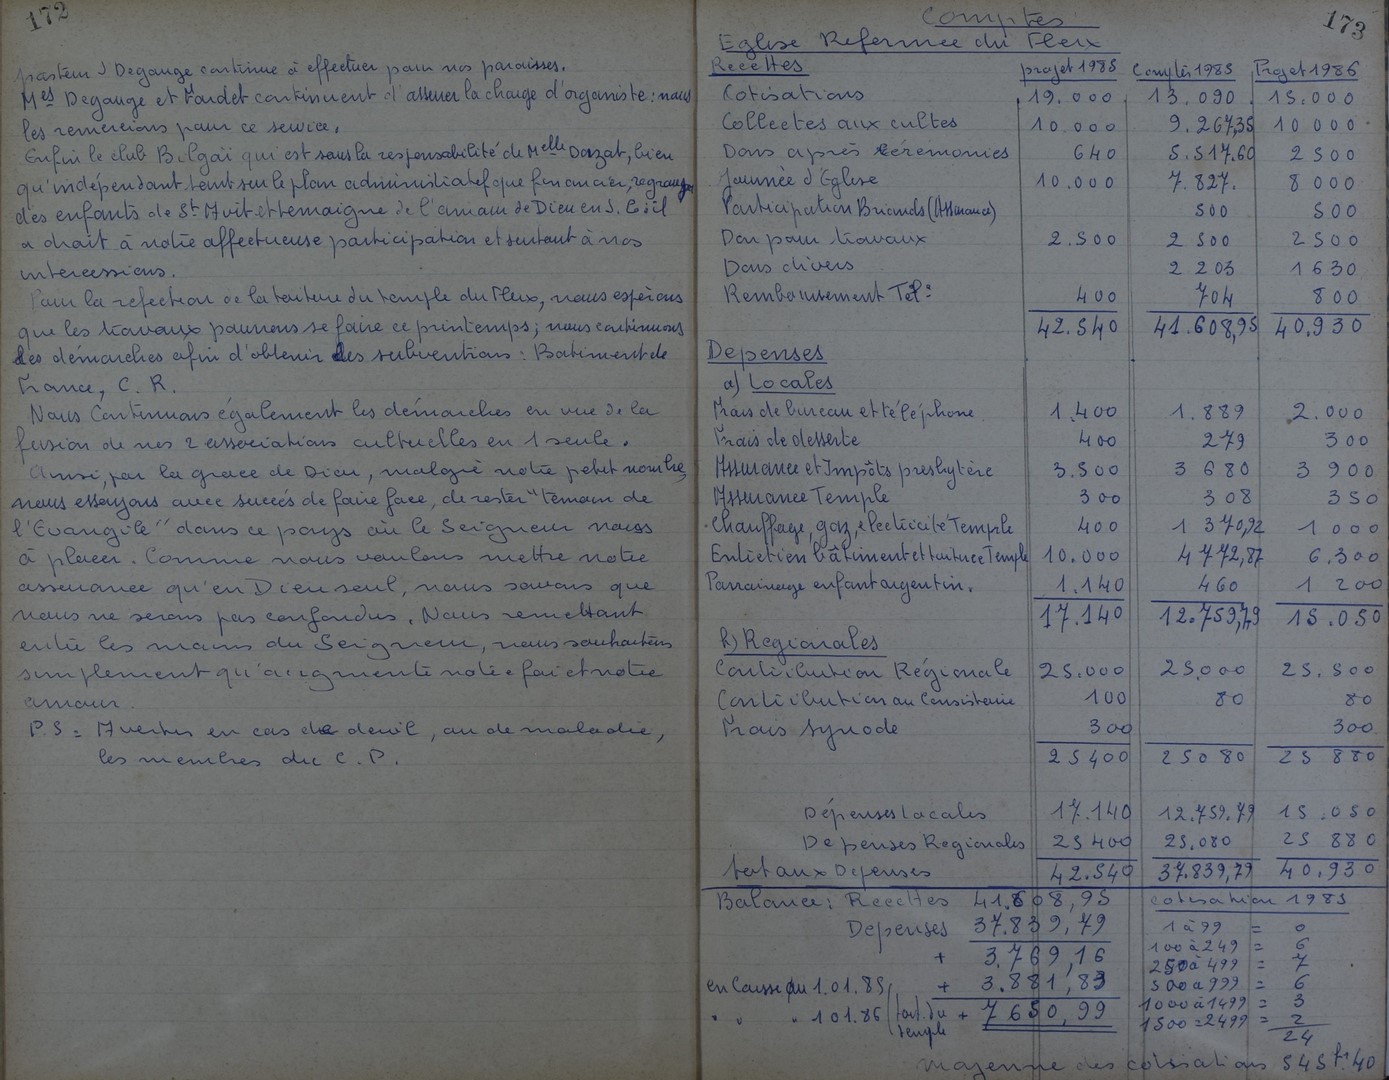 172
pasteur J Degauge continue à effectuer pour nos paroisses.
Mes Degauge et Faudet continuent d'assurer la charge d'organiste : nous
les remercions pour ce service.
Enfin le club Bilgaï qui est sous la responsabilité de Melle Dazat, bien
qu'indépendant tant sur le plan administratif que financier, regroupe
des enfants de St Avit et temoigne de l'amour de Dieu en J. C. il
a droit à notre affectueuse participation et surtout à nos
intercessions.
Pour la refection de la toiture du temple du Fleix, nous espérons
que les travaux pourrons se faire ce printemps ; nous continuons
les démarches afin d'obtenir des subventions : Batiment de
France, C. R.
Nous Continuons également les démarches en vue de la
fusion de nos 2 associations cultuelles en 1 seule.
Ainsi, par la grace de Dieu, malgré notre petit nombre,
nous essayons avec succés de faire face, de rester "temoin de
l'Evangile" dans ce pays où le Seigneur nous
à placer. Comme nous voulons mettre notre
assurance qu'en Dieu seul, nous savons que
nous ne serons pas confondus. Nous remettant
entre les mains du Seigneur, nous souhaitons
simplement qu'augmente notre foi et notre
amour.
P.S = Avertir en cas de deuil, ou de maladie,
les membres du C. P.
173
Comptes
Eglise Reformée du Fleix
Recettes projet 1985 Comptes 1985 Projet 1986
Cotisations 19.000 13.090 15.000
Collectes aux cultes 10.000 9.267,35 10 000
Dons après cérémonies 640 5.517.60 2 500
Journée d'Eglise 10.000 7.827. 8 000
Participation Briands (Assurance) 500 500
Don pour travaux 2.500 2 500 2 500
Dons divers 2 203 1 630
Remboursement Tel: 400 704 800
42.540 41.608,95 40.930
Depenses
a) Locales
Frais de bureau et téléphone 1.400 1.889 2.000
Frais de desserte 400 279 300
Assurance et Impôts presbytère 3.500 3 680 3 900
Assurance Temple 300 308 350
Chauffage, gaz, electricité Temple 400 1 370,92 1 000
Entretien bâtiment et toiture Temple 10.000 4 772,87 6.300
Parrainage enfant argentin. 1.140 460 1 200
17.140 12.759,79 15.050
b) Regionales
Contribution Régionale 25.000 25,000 25.500
Contribution au Consistoire 100 80 80
Frais Synode 300 300
25400 25080 25 880
Dépenses Locales 17.140 12.759.79 15.050
Depenses Regionales 25 400 25.080 25 880
totaux Depenses 42.540 37.839,79 40.930
Balance : Recettes 41.608,95
Depenses 37.839,79
+ 3.769,16
en Caisse du 1.01.85 + 3.881,83
" " " 1 01.86 (toit. du temple + 7 650,99
cotisation 1985
1 à 99 = 0
100 à 249 = 6
250 à 499 = 7
500 a 999 = 6
1000 à 1499 = 3
1500 = 2499 = 2
24
moyenne des cotisations 545 fr. 40